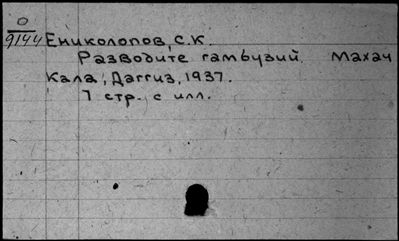 О
9144 Ениколопов, С.К.
Разводите гамбузий. Махач
Кала, Даггиз, 1937.
7 стр. с илл.